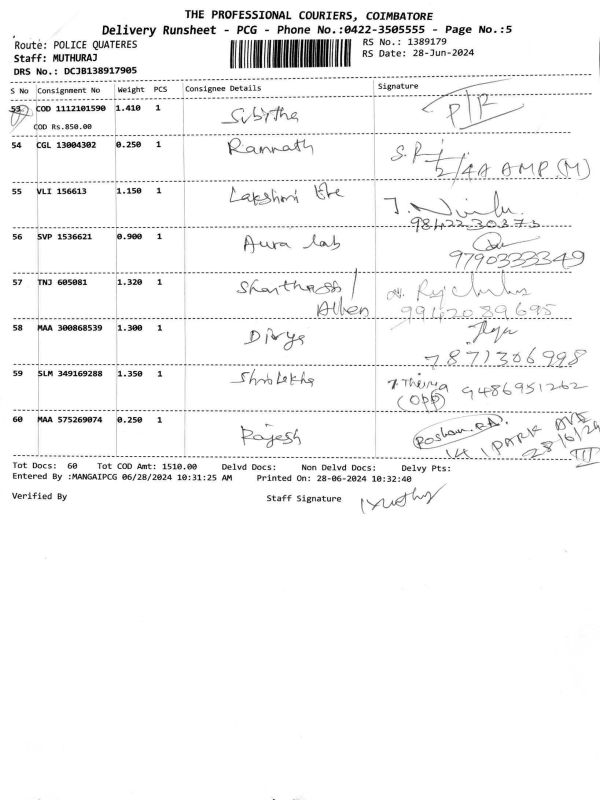 THE PROFESSIONAL COURIERS, COIMBATORE
Delivery Runsheet - PCG - Phone No.:0422-3505555 - Page No.:5
Route: POLICE QUATERES
RS No.: 1389179
Staff: MUTHURAJ
RS Date: 28-Jun-2024
DRS No.: DCJB138917905
S No Consignment No Weight PCS Consignee Details Signature
53 COD 1112101590 1.410 1 Subitha P/R
COD Rs.850.00
54 CGL 13004302 0.250 1 Ramnath S.R
2/4A AMP (M)
55 VLI 156613 1.150 1 Lakshmi
98422 30373
56 SVP 1536621 0.900 1 Aura lab
9790333349
57 TNJ 605081 1.320 1 /
Allen 9942089695
58 MAA 300868539 1.300 1 Divya
7871306998
59 SLM 349169288 1.350 1 9486951262
(OPP)
60 MAA 575269074 0.250 1 Rajesh Roshan
14 1 PARK AVE
28/6/24
III
Tot Docs: 60 Tot COD Amt: 1510.00 Delvd Docs: Non Delvd Docs: Delvy Pts:
Entered By :MANGAIPCG 06/28/2024 10:31:25 AM Printed On: 28-06-2024 10:32:40
Verified By Staff Signature